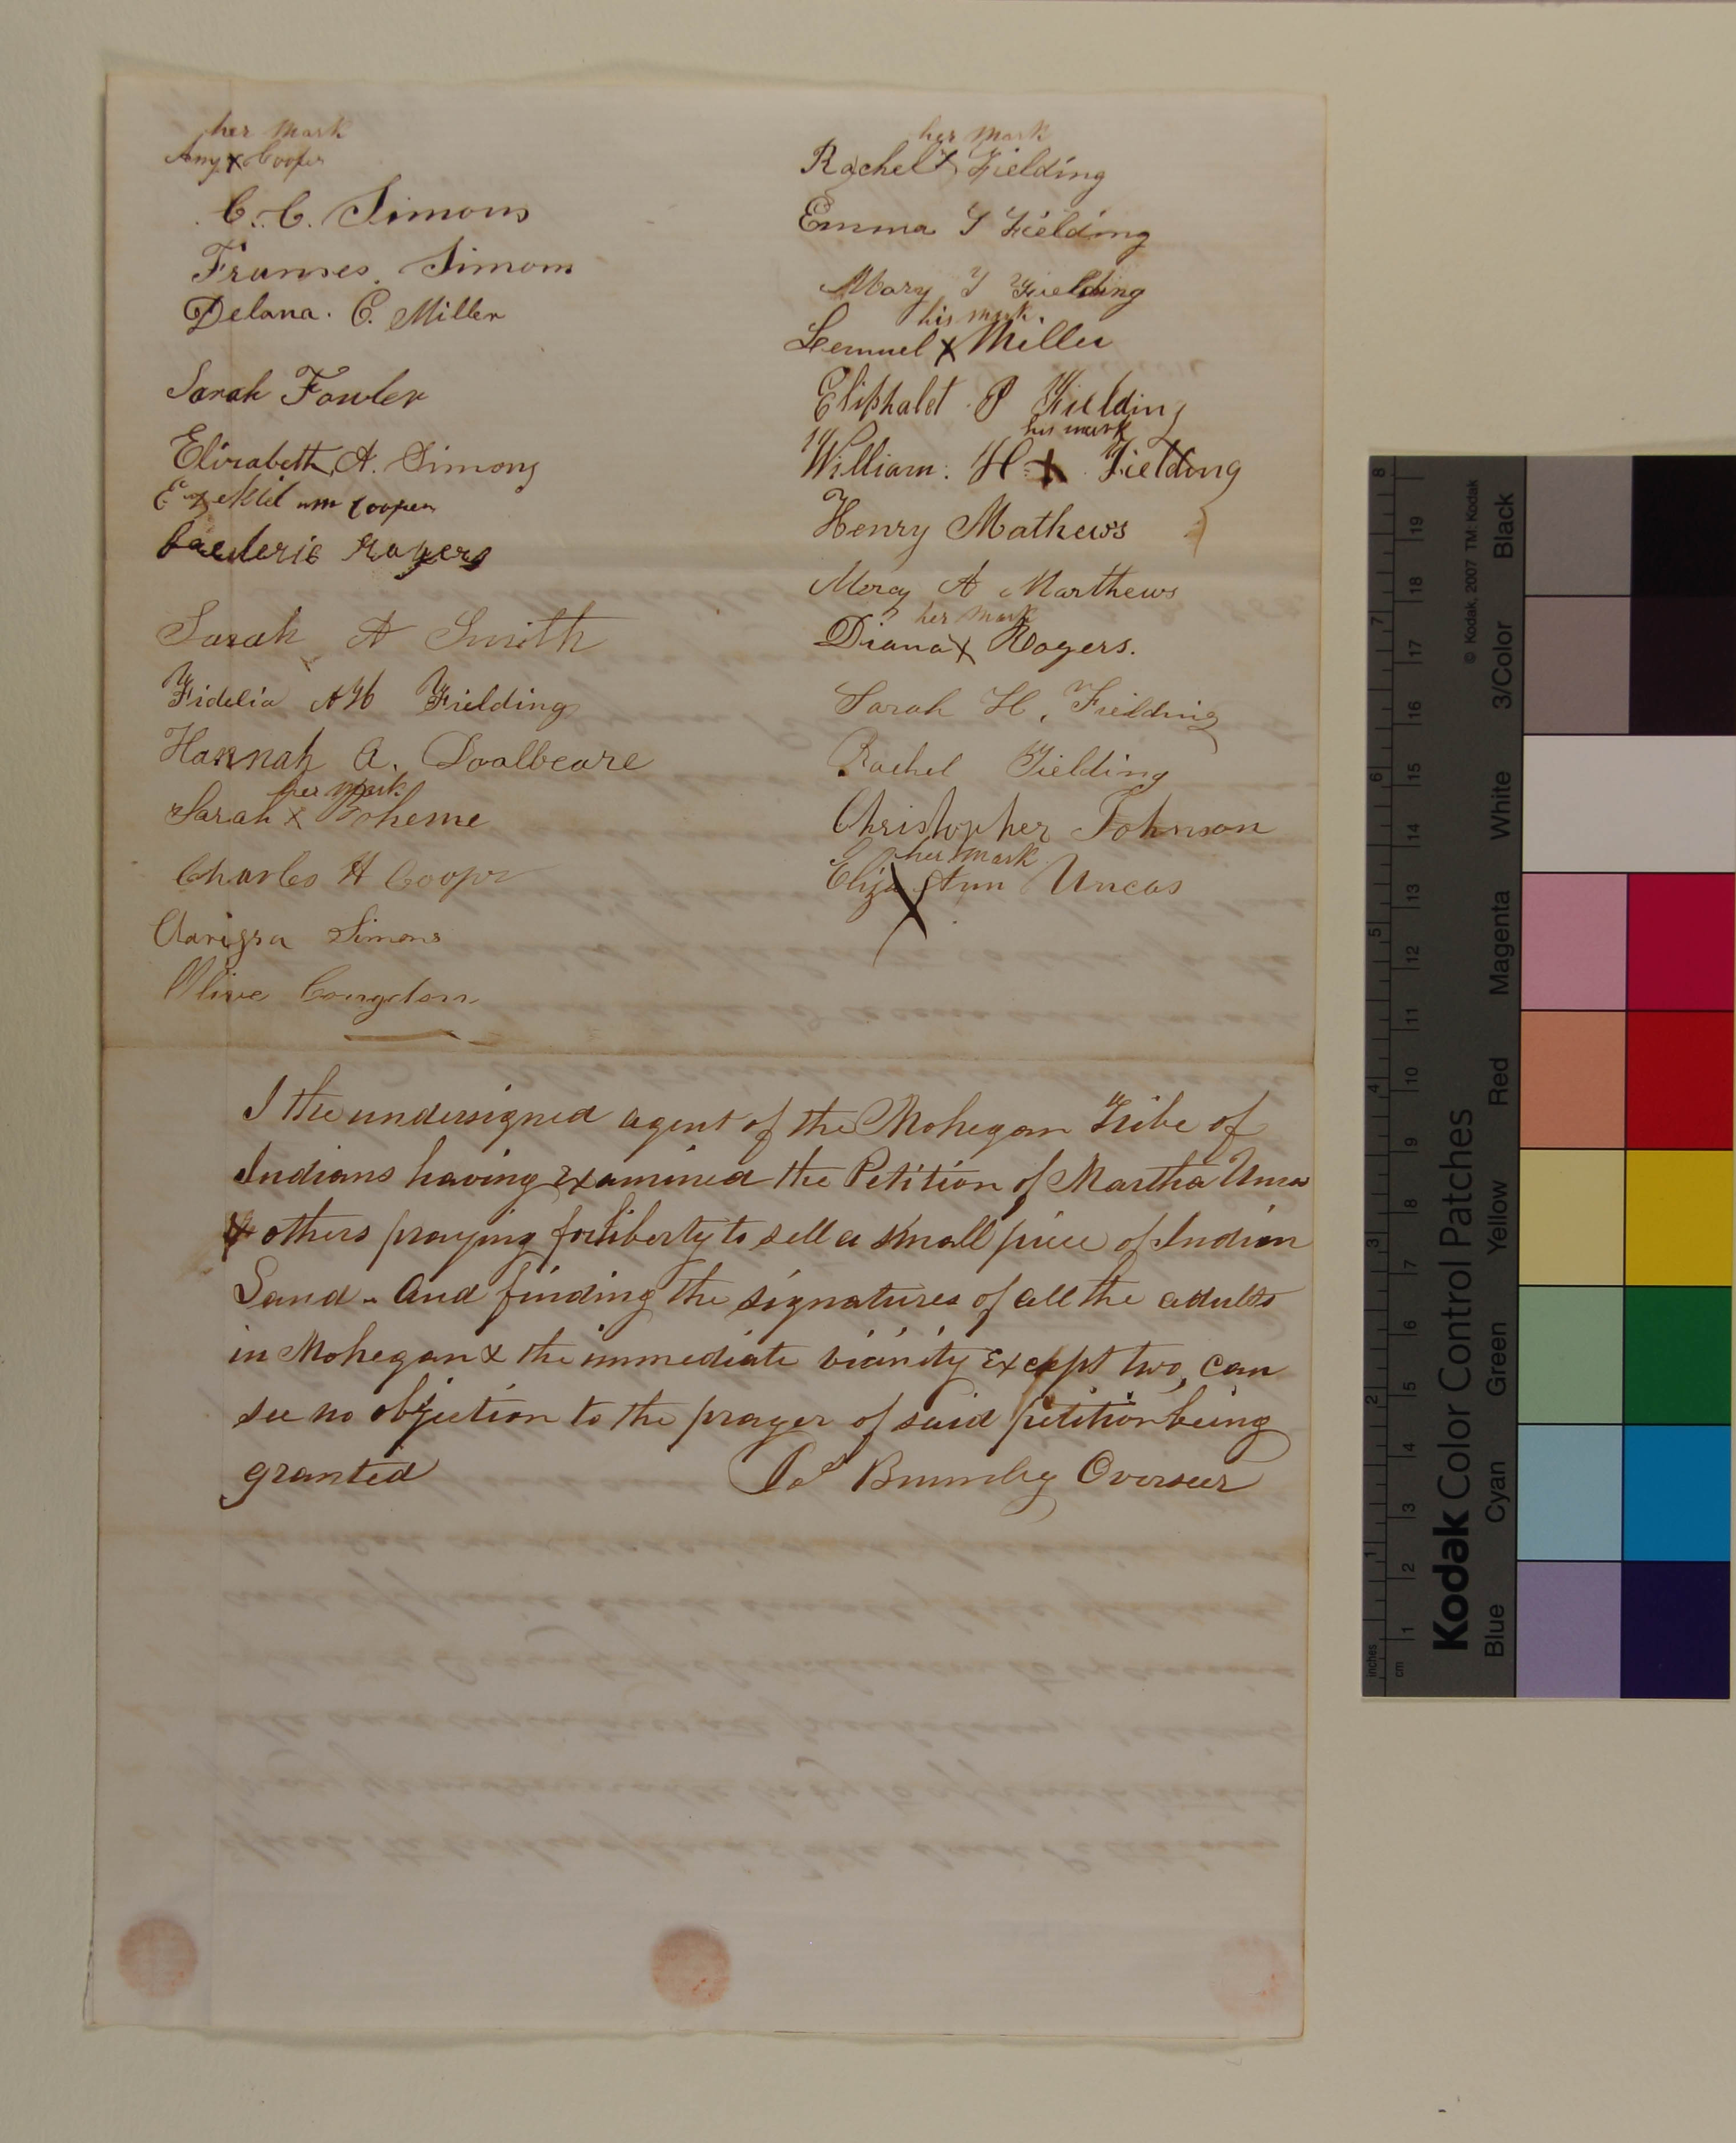 her mark
Amy X Cooper
C. C. Simons
Franses Simons
Delana. C. Miller
Sarah Fowler
Elizabeth, A. Simons
Ezekiel wm Cooper
Rogers
Sarah A Smith
Fidelia A H Fielding
Hannah A. Doolbeare
her mark
Sarah X Boheme
Charles H Coopr
Clarissa Simons
Olive Congdon
her mark
Rachel X Fielding
Emma T Fielding
Mary T Fielding
his mark.
Lemuel X Miller
Eliphalet P Fielding
his mark
William. H. X Fielding
Henry Mathews
Mercy A Marthews
her mark
Diana X Rogers.
Sarah H. Fielding
Rachel Fielding
Christopher Johnson
her mark
Eliza X Ann Uncas
I the undersigned agent of the Mohegan Tribe of
Indians having examined the Petition of Martha Uncas
& others praying for liberty to sell a small piece of Indian
Land - and finding the signatures of all the adults
in Mohegan & the immediate vicinity except two, can
see no objection to the prayer of said petition being
granted Jos Brumley Overseer
Kodak Color Control Patches
© Kodak, 2007 TM: Kodak
Blue Cyan Green Yellow Red Magenta White 3/Color Black
inches 1 2 3 4 5 6 7 8
cm 1 2 3 4 5 6 7 8 9 10 11 12 13 14 15 16 17 18 19